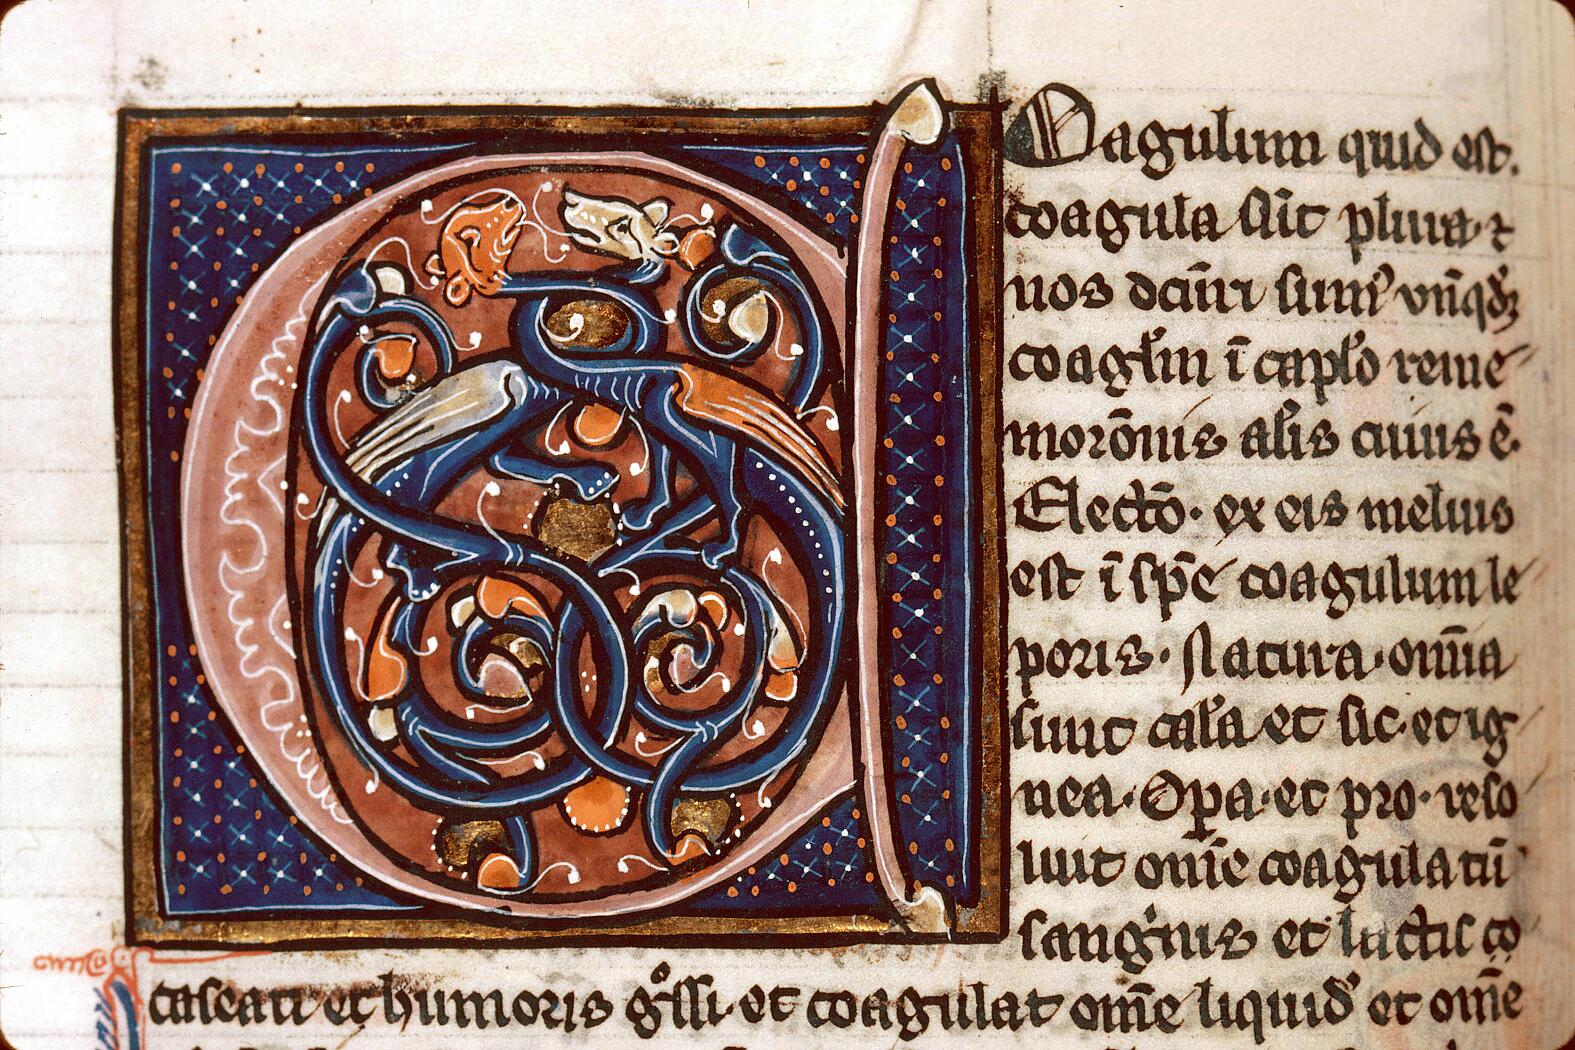 C Oagulum quid est.
coagula sūt plura· ⁊
nos dcātr sum⁹
coagl'm ī capl'o reme
morōnis al'is cuius ē.
Electō· ex eis melius
est ī sp̄e coagulum le
poris· Natura· om̄ia
sunt cal'a et sic· et ig
nea· Op̄a· et pro· reso
luit om̄e coagulatū
sangͥnis et lactis co
caseati et humoris gͦssi· et coagulat om̄e liquid' et om̄e